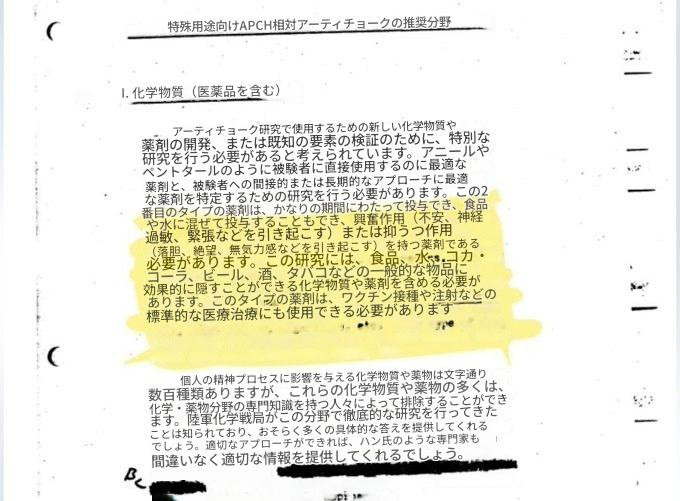 特殊用途向けAPCH相対アーティチョークの推奨分野
I. 化学物質（医薬品を含む）
アーティチョーク研究で使用するための新しい化学物質や
薬剤の開発、または既知の要素の検証のために、特別な
研究を行う必要があると考えられています。アニールや
ペントタールのように被験者に直接使用するのに最適な
薬剤と、被験者への間接的または長期的なアプローチに最適
な薬剤を特定するための研究を行う必要があります。この2
番目のタイプの薬剤は、かなりの期間にわたって投与でき、食品
や水に混ぜて投与することもでき、興奮作用（不安、神経
過敏、緊張などを引き起こす）または抑うつ作用
（落胆、絶望、無気力感などを引き起こす）を持つ薬剤である
必要があります。この研究には、食品、水、コカ・
コーラ、ビール、酒、タバコなどの一般的な物品に
効果的に隠すことができる化学物質や薬剤を含める必要が
あります。このタイプの薬剤は、ワクチン接種や注射などの
標準的な医療治療にも使用できる必要があります
個人の精神プロセスに影響を与える化学物質や薬物は文字通り
数百種類ありますが、これらの化学物質や薬物の多くは、
化学・薬物分野の専門知識を持つ人々によって排除することができ
ます。陸軍化学戦局がこの分野で徹底的な研究を行ってきた
ことは知られており、おそらく多くの具体的な答えを提供してくれる
でしょう。適切なアプローチができれば、ハン氏のような専門家も
間違いなく適切な情報を提供してくれるでしょう。